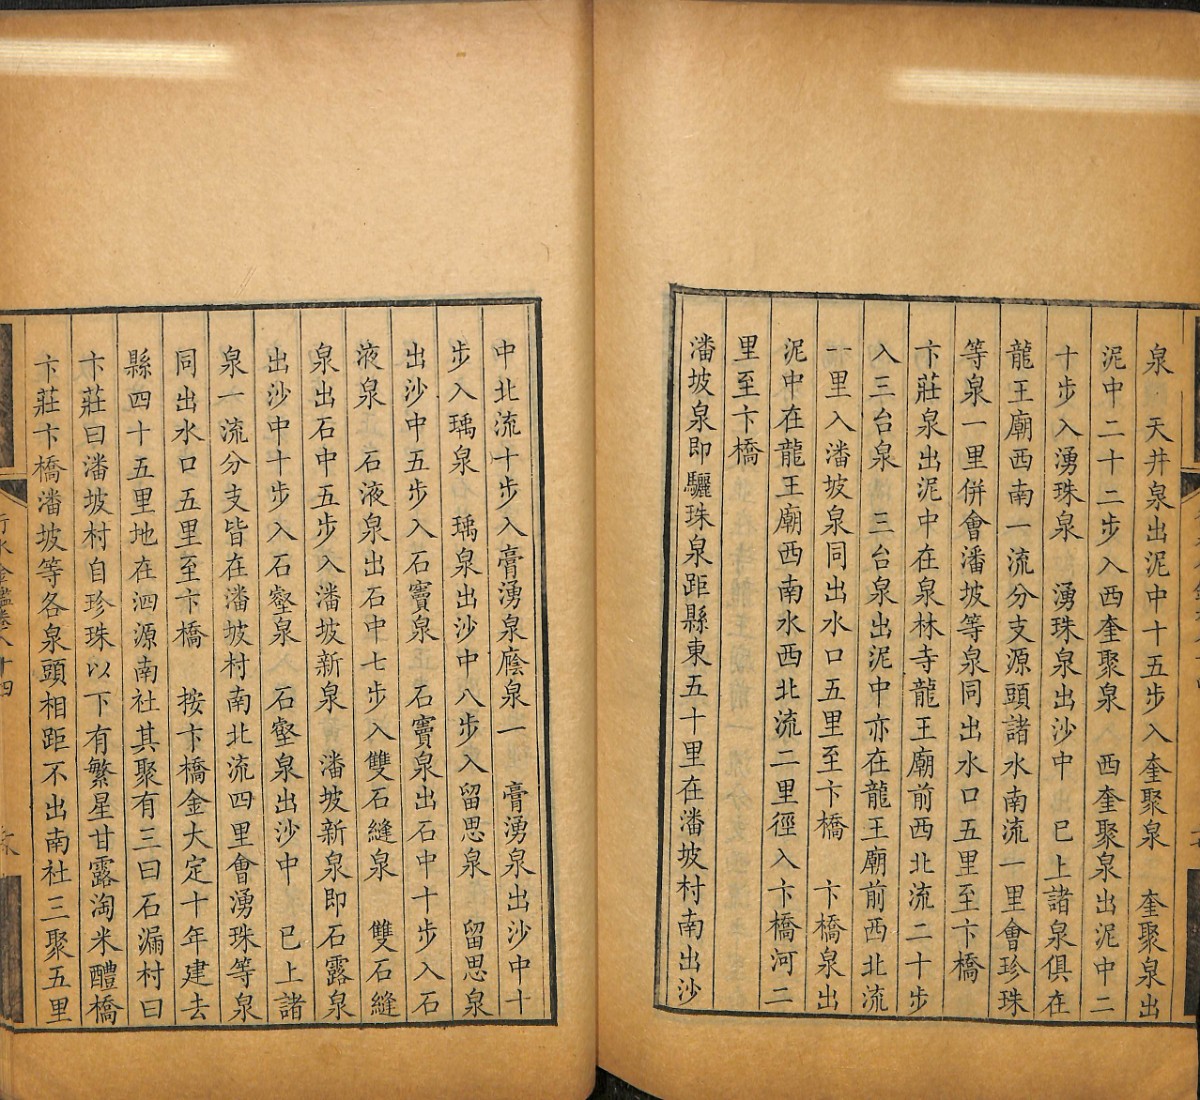 泉　天井泉出泥中十五步入奎聚泉　奎聚泉出
泥中二十二步入西奎聚泉　西奎聚泉出泥中二
十步入湧珠泉　湧珠泉出沙中　已上諸泉俱在
龍王廟西南一流分支源頭諸水南流一里會珍珠
等泉一里併會潘坡等泉同出水口五里至卞橋
卞莊泉出泥中在泉林寺龍王廟前西北流二十步
入三台泉　三台泉出泥中亦在龍王廟前西北流
一里入潘坡泉同出水口五里至卞橋　卞橋泉出
泥中在龍王廟西南水西北流二里徑入卞橋河二
里至卞橋
潘坡泉即驪珠泉距縣東五十里在潘坡村南出沙
中北流十步入膏湧泉廕泉一　膏湧泉出沙中十
步入瑀泉　瑀泉出沙中八步入留思泉　留思泉
出沙中五步入石竇泉　石竇泉出石中十步入石
液泉　石液泉出石中七步入雙石縫泉　雙石縫
泉出石中五步入潘坡新泉　潘坡新泉即石露泉
出沙中十步入石壑泉　石壑泉出沙中　已上諸
泉一流分支皆在潘坡村南北流四里會湧珠等泉
同出水口五里至卞橋　按卞橋金大定十年建去
縣四十五里地在泗源南社其聚有三曰石漏村曰
卞莊曰潘坡村自珍珠以下有繁星甘露淘米醴橋
卞莊卞橋潘坡等各泉頭相距不出南社三聚五里
行水金鑑卷八十四